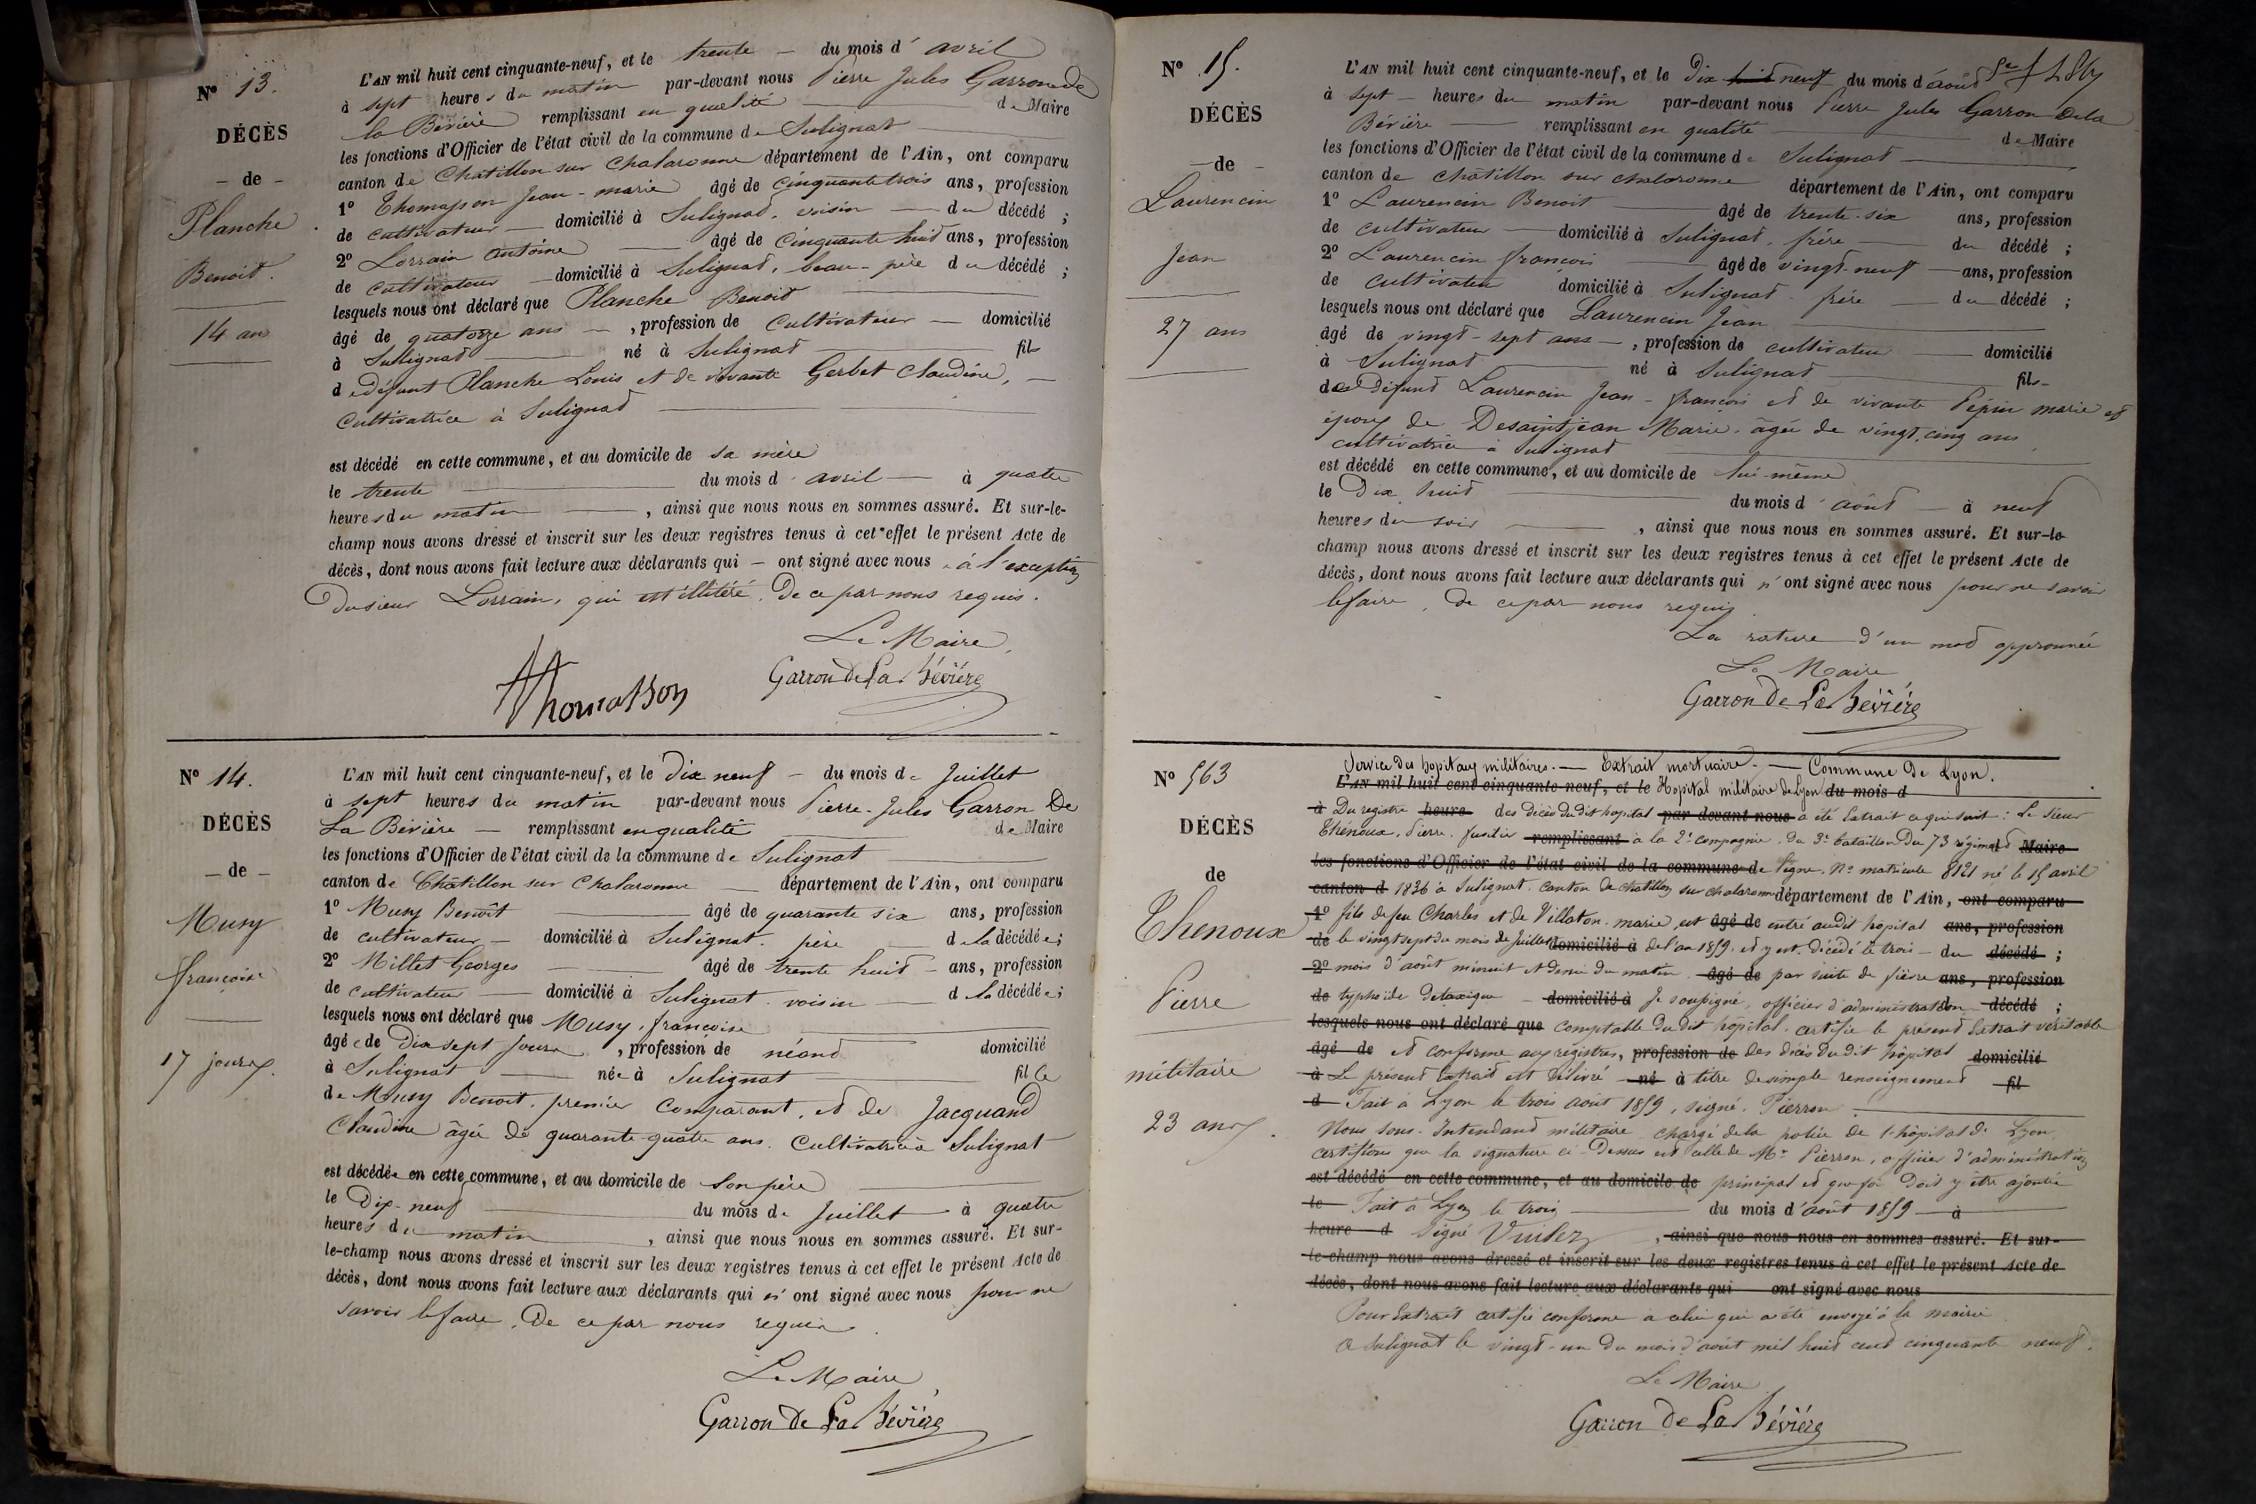 N° 13.
DÉCÈS
- de -
Planche
Benoit.
14 ans
L'AN mil huit cent cinquante-neuf, et le trente - du mois d'avril
à sept heures du matin par-devant nous Pierre Jules Garron de
la Bévière remplissant en qualité de Maire
les fonctions d'Officier de l'état civil de la commune de Sulignat
canton de Chatillon sur Chalaronne département de l'Ain, ont comparu
1° Thomasson Jean-marie âgé de cinquante trois ans, profession
de cultivateur domicilié à Sulignat, voisin du décédé ;
2° Lorrain antoine âgé de cinquante huit ans, profession
de cultivateur domicilié à Sulignat, beau-père du décédé ;
lesquels nous ont déclaré que Planche Benoit
âgé de quatorze ans, profession de Cultivateur domicilié
à Sulignat né à Sulignat fils
de défunt Planche Louis et de vivante Gerbet Claudine,
Cultivatrice à Sulignat
est décédé en cette commune, et au domicile de sa mère
le trente du mois d'avril à quatre
heures du matin, ainsi que nous nous en sommes assuré. Et sur-le-
champ nous avons dressé et inscrit sur les deux registres tenus à cet effet le présent Acte de
décès, dont nous avons fait lecture aux déclarants qui - ont signé avec nous à l'exception
du sieur Lorrain, qui est illitéré. De ce par nous requis.
Le Maire,
Thomasson Garron de La Bévière
N° 14.
DÉCÈS
- de -
Musy
françoise
17 jours.
L'AN mil huit cent cinquante-neuf, et le Dix neuf - du mois de Juillet
à sept heures du matin par-devant nous Pierre-Jules Garron De
La Bévière - remplissant en qualité de Maire
les fonctions d'Officier de l'état civil de la commune de Sulignat
canton de Châtillon sur Chalaronne département de l'Ain, ont comparu
1° Musy Benoît âgé de quarante six ans, profession
de cultivateur - domicilié à Sulignat. père de la décédée ;
2° Millet Georges âgé de trente huit - ans, profession
de cultivateur domicilié à Sulignat. voisin de la décédée ;
lesquels nous ont déclaré que Musy, francoise
âgée de Dix sept Jours, profession de néant domicilié
à Sulignat née à Sulignat fille
de Musy Benoit. premier Comparant, et de Jacquand
Claudine âgée de quarante-quatre ans. Cultivatrice à Sulignat
est décédée en cette commune, et au domicile de son père
le Dix-neuf du mois de Juillet à quatre
heures du matin, ainsi que nous nous en sommes assuré. Et sur-
le-champ nous avons dressé et inscrit sur les deux registres tenus à cet effet le présent Acte de
décès, dont nous avons fait lecture aux déclarants qui n'ont signé avec nous pour ne
savoir le faire. De ce par nous requis.
Le Maire
Garron De La Bévière
N° 15.
DÉCÈS
- de -
Laurencin
Jean
27 ans
L'AN mil huit cent cinquante-neuf, et le Dix huit neuf du mois d'août
à sept - heures du matin par-devant nous Pierre Jules Garron De la
Bévière remplissant en qualité de Maire
les fonctions d'Officier de l'état civil de la commune de Sulignat
canton de Châtillon sur chalaronne département de l'Ain, ont comparu
1° Laurencin Benoit âgé de trente-six ans, profession
de cultivateur domicilié à Sulignat, frère du décédé ;
2° Laurencin françois âgé de vingt-neuf ans, profession
de cultivateur domicilié à Sulignat frère du décédé ;
lesquels nous ont déclaré que Laurencin Jean
âgé de vingt-sept ans, profession de cultivateur domicilié
à Sulignat né à Sulignat fils
de défunt Laurencin Jean-françois et de vivante Pépin marie et
époux de Desaintjean Marie, âgée de vingt cinq ans
cultivatrice à Sulignat
est décédé en cette commune, et au domicile de lui-même
le Dix huit du mois d'août à neuf
heures du soir, ainsi que nous nous en sommes assuré. Et sur-le-
champ nous avons dressé et inscrit sur les deux registres tenus à cet effet le présent Acte de
décès, dont nous avons fait lecture aux déclarants qui n'ont signé avec nous pour ne savoir
le faire, De ce par nous requis.
La rature d'un mot approuvée
Le Maire
Garron De La Bévière
N° 563
DÉCÈS
de
Thenoux
Pierre
militaire
23 ans.
Service des hopitaux militaires. - Extrait mortuaire. - Commune De Lyon.
L'AN mil huit cent cinquante-neuf, et le Hopital militaire de Lyon du mois d
à Du registre heure des décès du dit hopital par-devant nous a été Extrait ce qui suit : Le Sieur
Thenoux, Pierre. fusilier remplissant à la 2e compagnie. Du 3e bataillon Du 73 régiment d Maire
les fonctions d'Officier de l'état civil de la commune de ligne. N° matricule 8121 né le 15 avril
canton d 1836 à Sulignat. Canton De Chatillon sur chalaronne département de l'Ain, ont comparu
1° fils de feu Charles et de Villaton. marie, est âgé de entré audit hopital ans, profession
de le vingt sept du mois de Juillet domicilié à de l'an 1859. et y est. Décédé le trois - du décédé ;
2° mois d'août minuit et demie du matin. âgé de par suite de fièvre ans, profession
de typhoïde domicilié à Je soussigné, officier d'administration décédé ;
lesquels nous ont déclaré que comptable du dit hôpital. certifie le présent Extrait véritable
âgé de et conforme aux registres, profession de des décès du dit hôpital domicilié
à Le présent Extrait est délivré né à titre de simple renseignement fil
d Fait à Lyon le trois août 1859, signé. Pierron
Nous sous-Intendant militaire chargé de la police de l'hôpital de Lyon
certifions que la signature ci-Dessus est celle de Mr Pierron, officier d'administration
est décédé en cette commune, et au domicile de principal et que foi Doit y être ajoutée
le Fait à Lyon le trois du mois d'août 1859 à
heure d signé, ainsi que nous nous en sommes assuré. Et sur-
le-champ nous avons dressé et inscrit sur les deux registres tenus à cet effet le présent Acte de
décès, dont nous avons fait lecture aux déclarants qui ont signé avec nous
Pour Extrait certifié conforme à celui qui a été envoyé à la mairie
De Sulignat le vingt-un du mois d'août mil huit cent cinquante neuf.
Le Maire
Garron De La Bévière